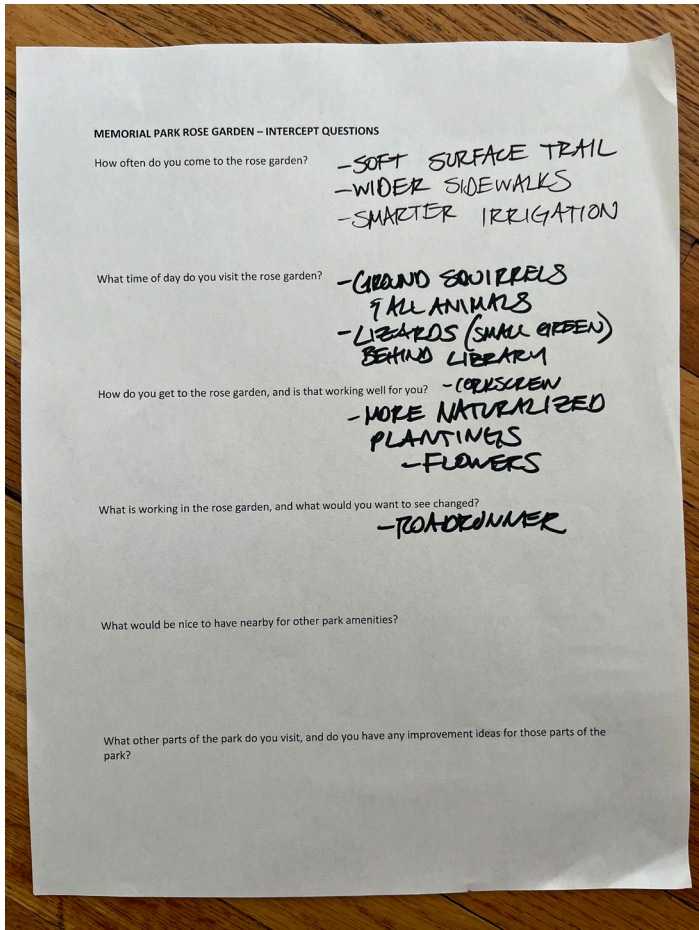 MEMORIAL PARK ROSE GARDEN – INTERCEPT QUESTIONS
How often do you come to the rose garden?
-SOFT SURFACE TRAIL
-WIDER SIDEWALKS
-SMARTER IRRIGATION
What time of day do you visit the rose garden?
-GROUND SQUIRRELS
& ALL ANIMALS
-LIZARDS (SMALL GREEN)
BEHIND LIBRARY
How do you get to the rose garden, and is that working well for you?
-CORKSCREW
-MORE NATURALIZED
PLANTINGS
-FLOWERS
What is working in the rose garden, and what would you want to see changed?
-ROADRUNNER
What would be nice to have nearby for other park amenities?
What other parts of the park do you visit, and do you have any improvement ideas for those parts of the
park?